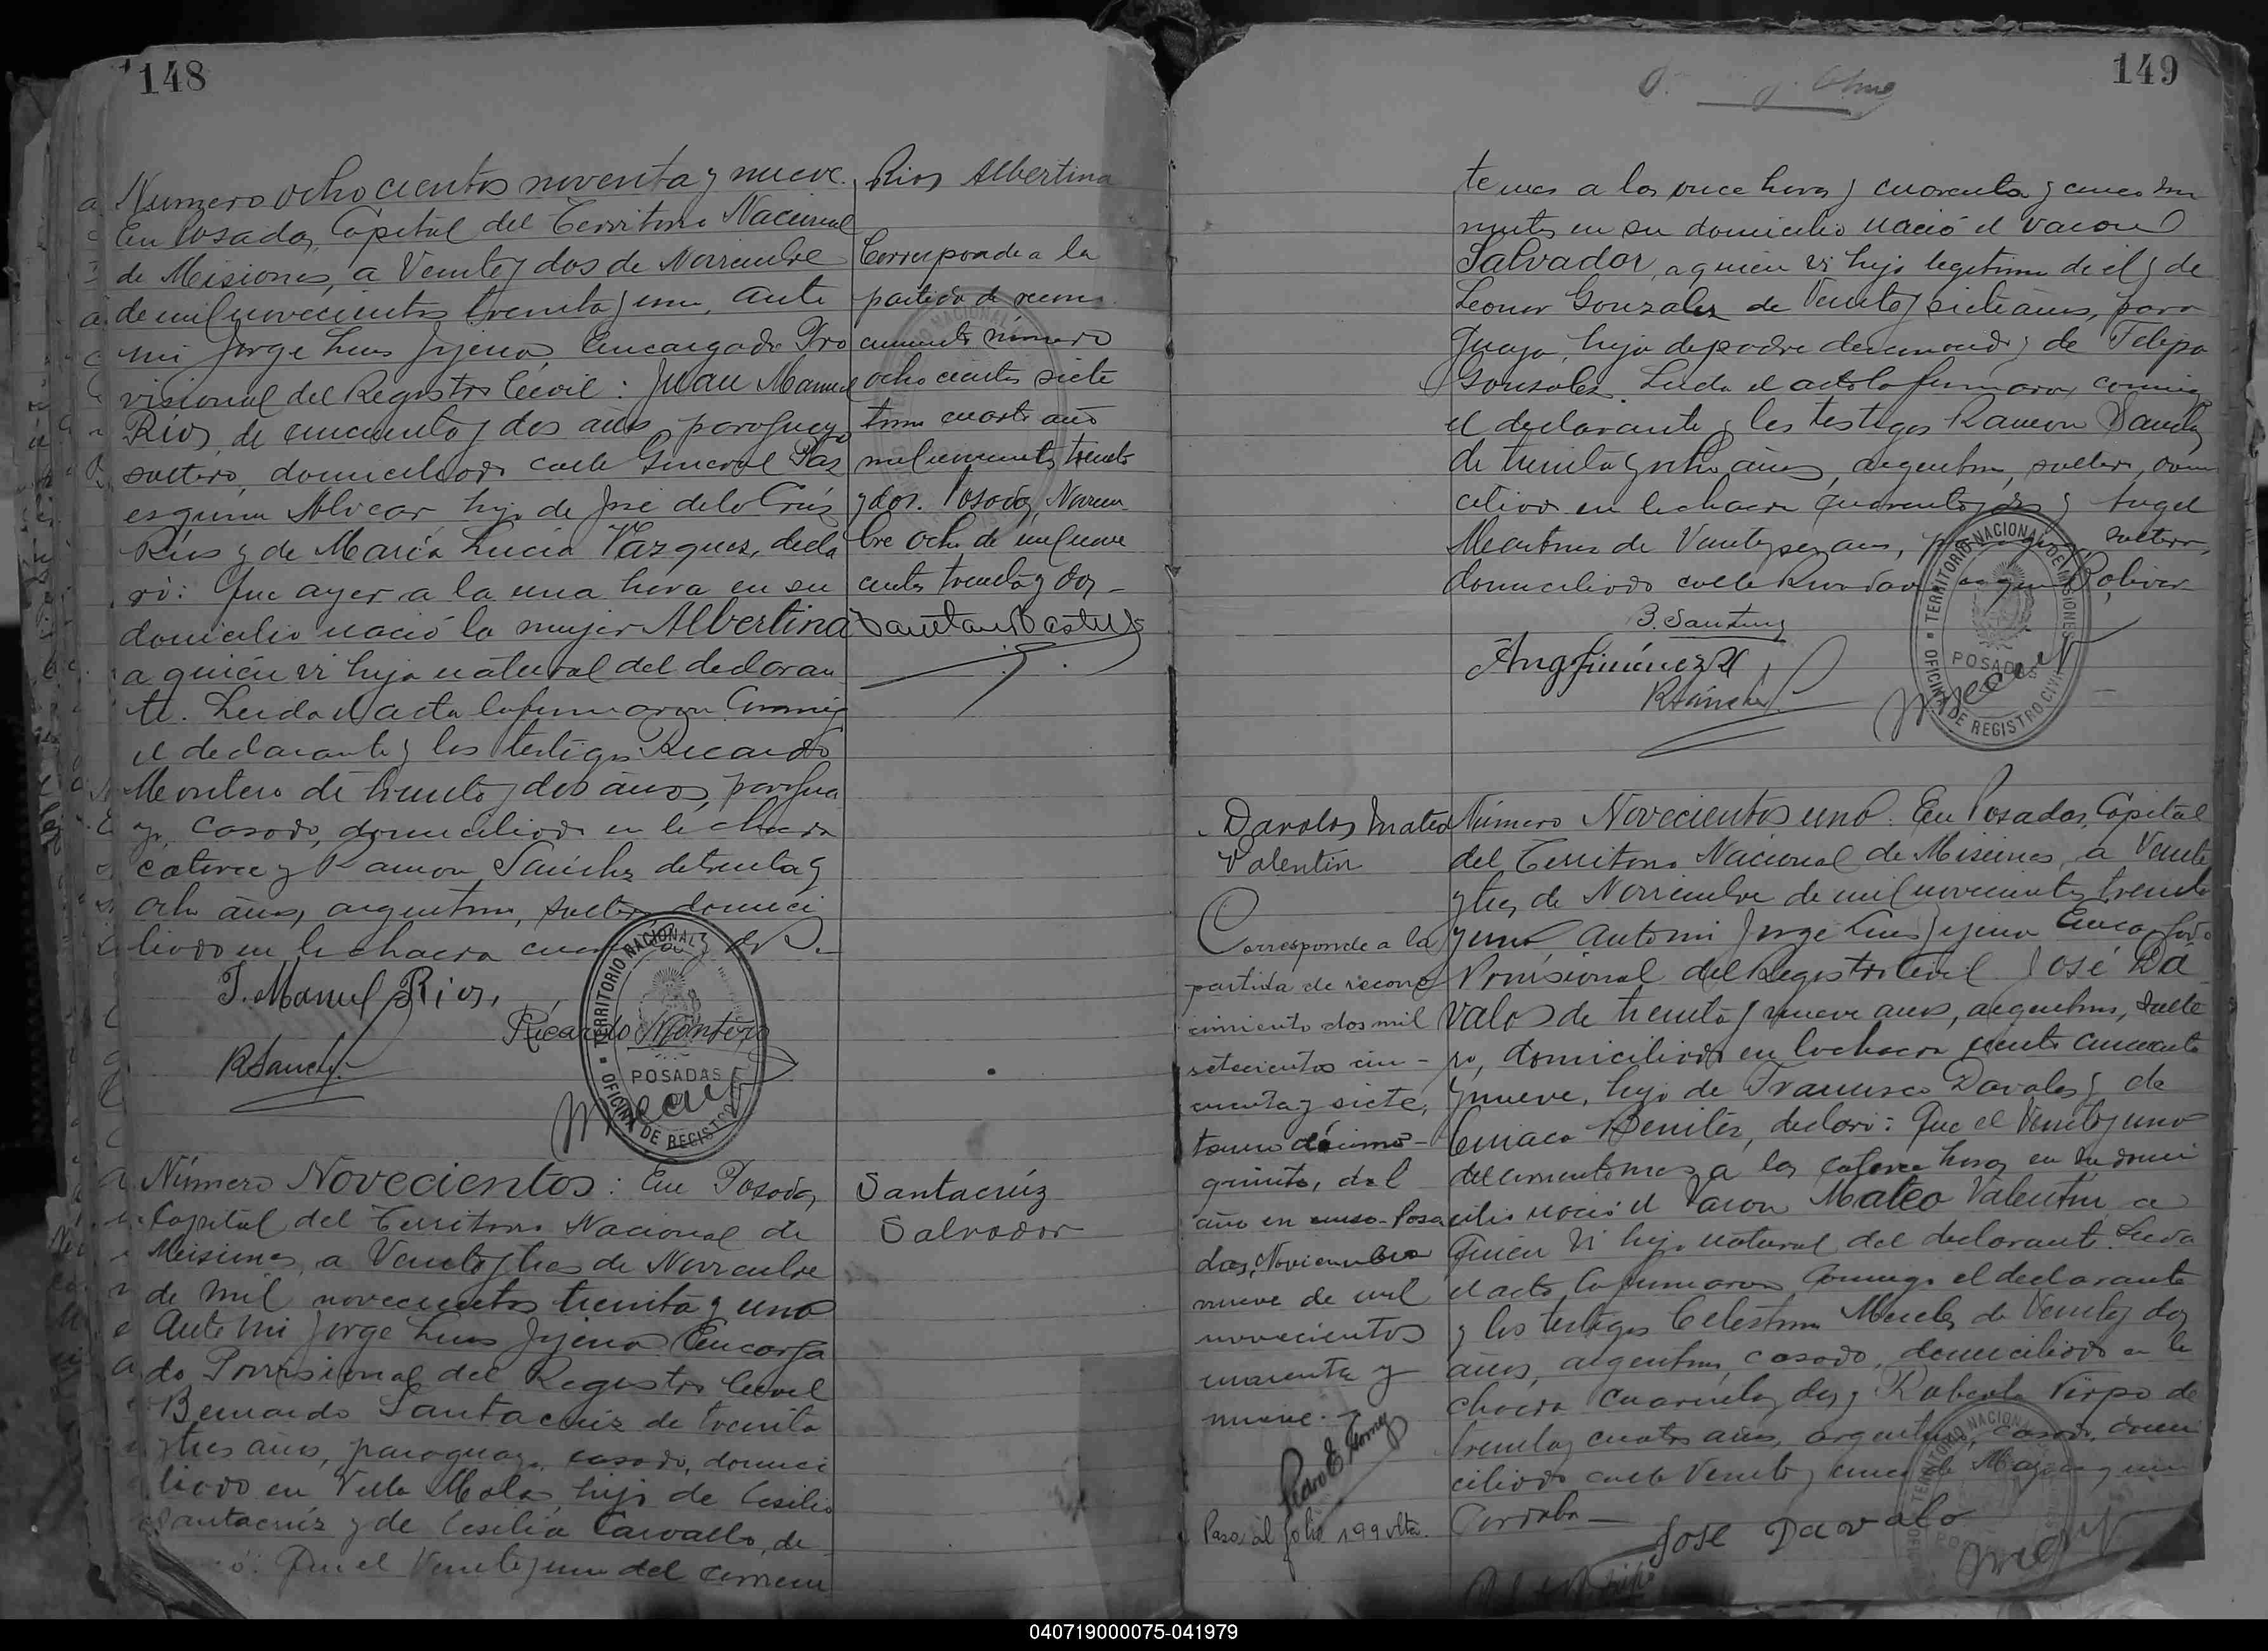 148
Número ochocientos noventa y nueve.
En Posadas, Capital del Territorio Nacional
de Misiones, a Veinte y dos de Noviembre
de mil novecientos treinta y uno, ante
mi Jorge Luis Jijena, Encargado Pro
visional del Registro Civil: Juan Manuel
Ríos, de cincuenta y dos años, paraguayo
soltero, domiciliado calle General Paz
esquina Alvear, hijo de José de la Crúz
Ríos y de María Lucía Vazquez, decla
ró: Que ayer a la una hora en su
domicilio nació la mujer Albertina
a quién vi hija natural del declaran
te. Leida el acta la firmaron conmigo
el declarante y los testigos Ricardo
Montero de treinta y dos años, paragua
yo, casado, domiciliado en la chacra
catorce y Ramon Sánchez de treinta y
ocho años, argentino, soltero, domici
liado en la chacra
J. Manuel Rios,
Ricardo Montero
RSanchez
TERRITORIO NACIONAL
POSADAS
OFICINA DE REGISTRO
Rios Albertina
Corresponde a la
partida de recono
cimiento número
ochocientos siete
tomo cuarto año
mil novecientos treinta
y dos. Posadas, Noviem
bre ocho de mil nove
cientos treinta y dos
Número Novecientos: En Posadas,
Capital del Territorio Nacional de
Misiones, a Veinte y tres de Noviembre
de mil novecientos treinta y uno
Ante mi Jorge Luis Jijena Encarga
do Provisional del Registro Civil
Bernardo Santacruz de treinta
y tres años, paraguayo, casado, domici
liado en Villa Mola, hijo de Cesilio
Santacruz y de Cesilia Carvallo, de
ó: Que el Veinte y uno del corrien
Santacrúz
Salvador
149
te mes a las once horas y cuarenta y cinco mi
nutos en su domicilio nació el varon
Salvador, a quien vi hijo legitimo de el y de
Leonor Gonzalez de Veinte y siete años, para
guaya, hija de padre desconocido y de Felipa
Gonzáles. Leida el acta la firmaron conmigo
el declarante y los testigos Ramon Sanchez
de treinta y ocho años, argentino, soltero, domi
ciliado en la chacra cuarenta y dos y Angel
de Veinte y seis años, soltero,
domiciliado calle Bolivar
B. Santacruz
RSánchez
TERRITORIO NACIONAL DE MISIONES
POSADAS
OFICINA DE REGISTRO CIVIL
Davalos Mateo
Valentín
Corresponde a la
partida de recono
cimiento dos mil
setecientos cin-
cuenta y siete,
tomo décimo-
quinto, del
año en curso. Posa
das, Noviembre
nueve de mil
novecientos
cuarenta y
nueve.
Pasa al folio 199 vlta.
Número Novecientos uno. En Posadas, Capital
del Territorio Nacional de Misiones, a Veinte
y tres de Noviembre de mil novecientos treinta
y uno Ante mi Jorge Luis Jijena Encargado
Provisional del Registro Civil José Da
valos de treinta y nueve años, argentino, solte
ro, domiciliado en la chacra ciento cincuenta
y nueve, hijo de Francisco Davalos y de
Ciriaca Benitez, declaró: Que el Veinte y uno
del corriente mes a las catorce horas en su domi
cilio nació el Varon Mateo Valentín, a
quien vi hijo natural del declarante. Leida
el acta la firmaron conmigo el declarante
y los testigos Celestino Meceles de Veinte y dos
años, argentino, casado, domiciliado en la
chacra cuarenta y dos y Roberto Virpo de
treinta y cuatro años, argentino, casado, domi
ciliado calle Veinte y cinco de Mayo esquina
Cordoba
Jose Davalo
040719000075-041979